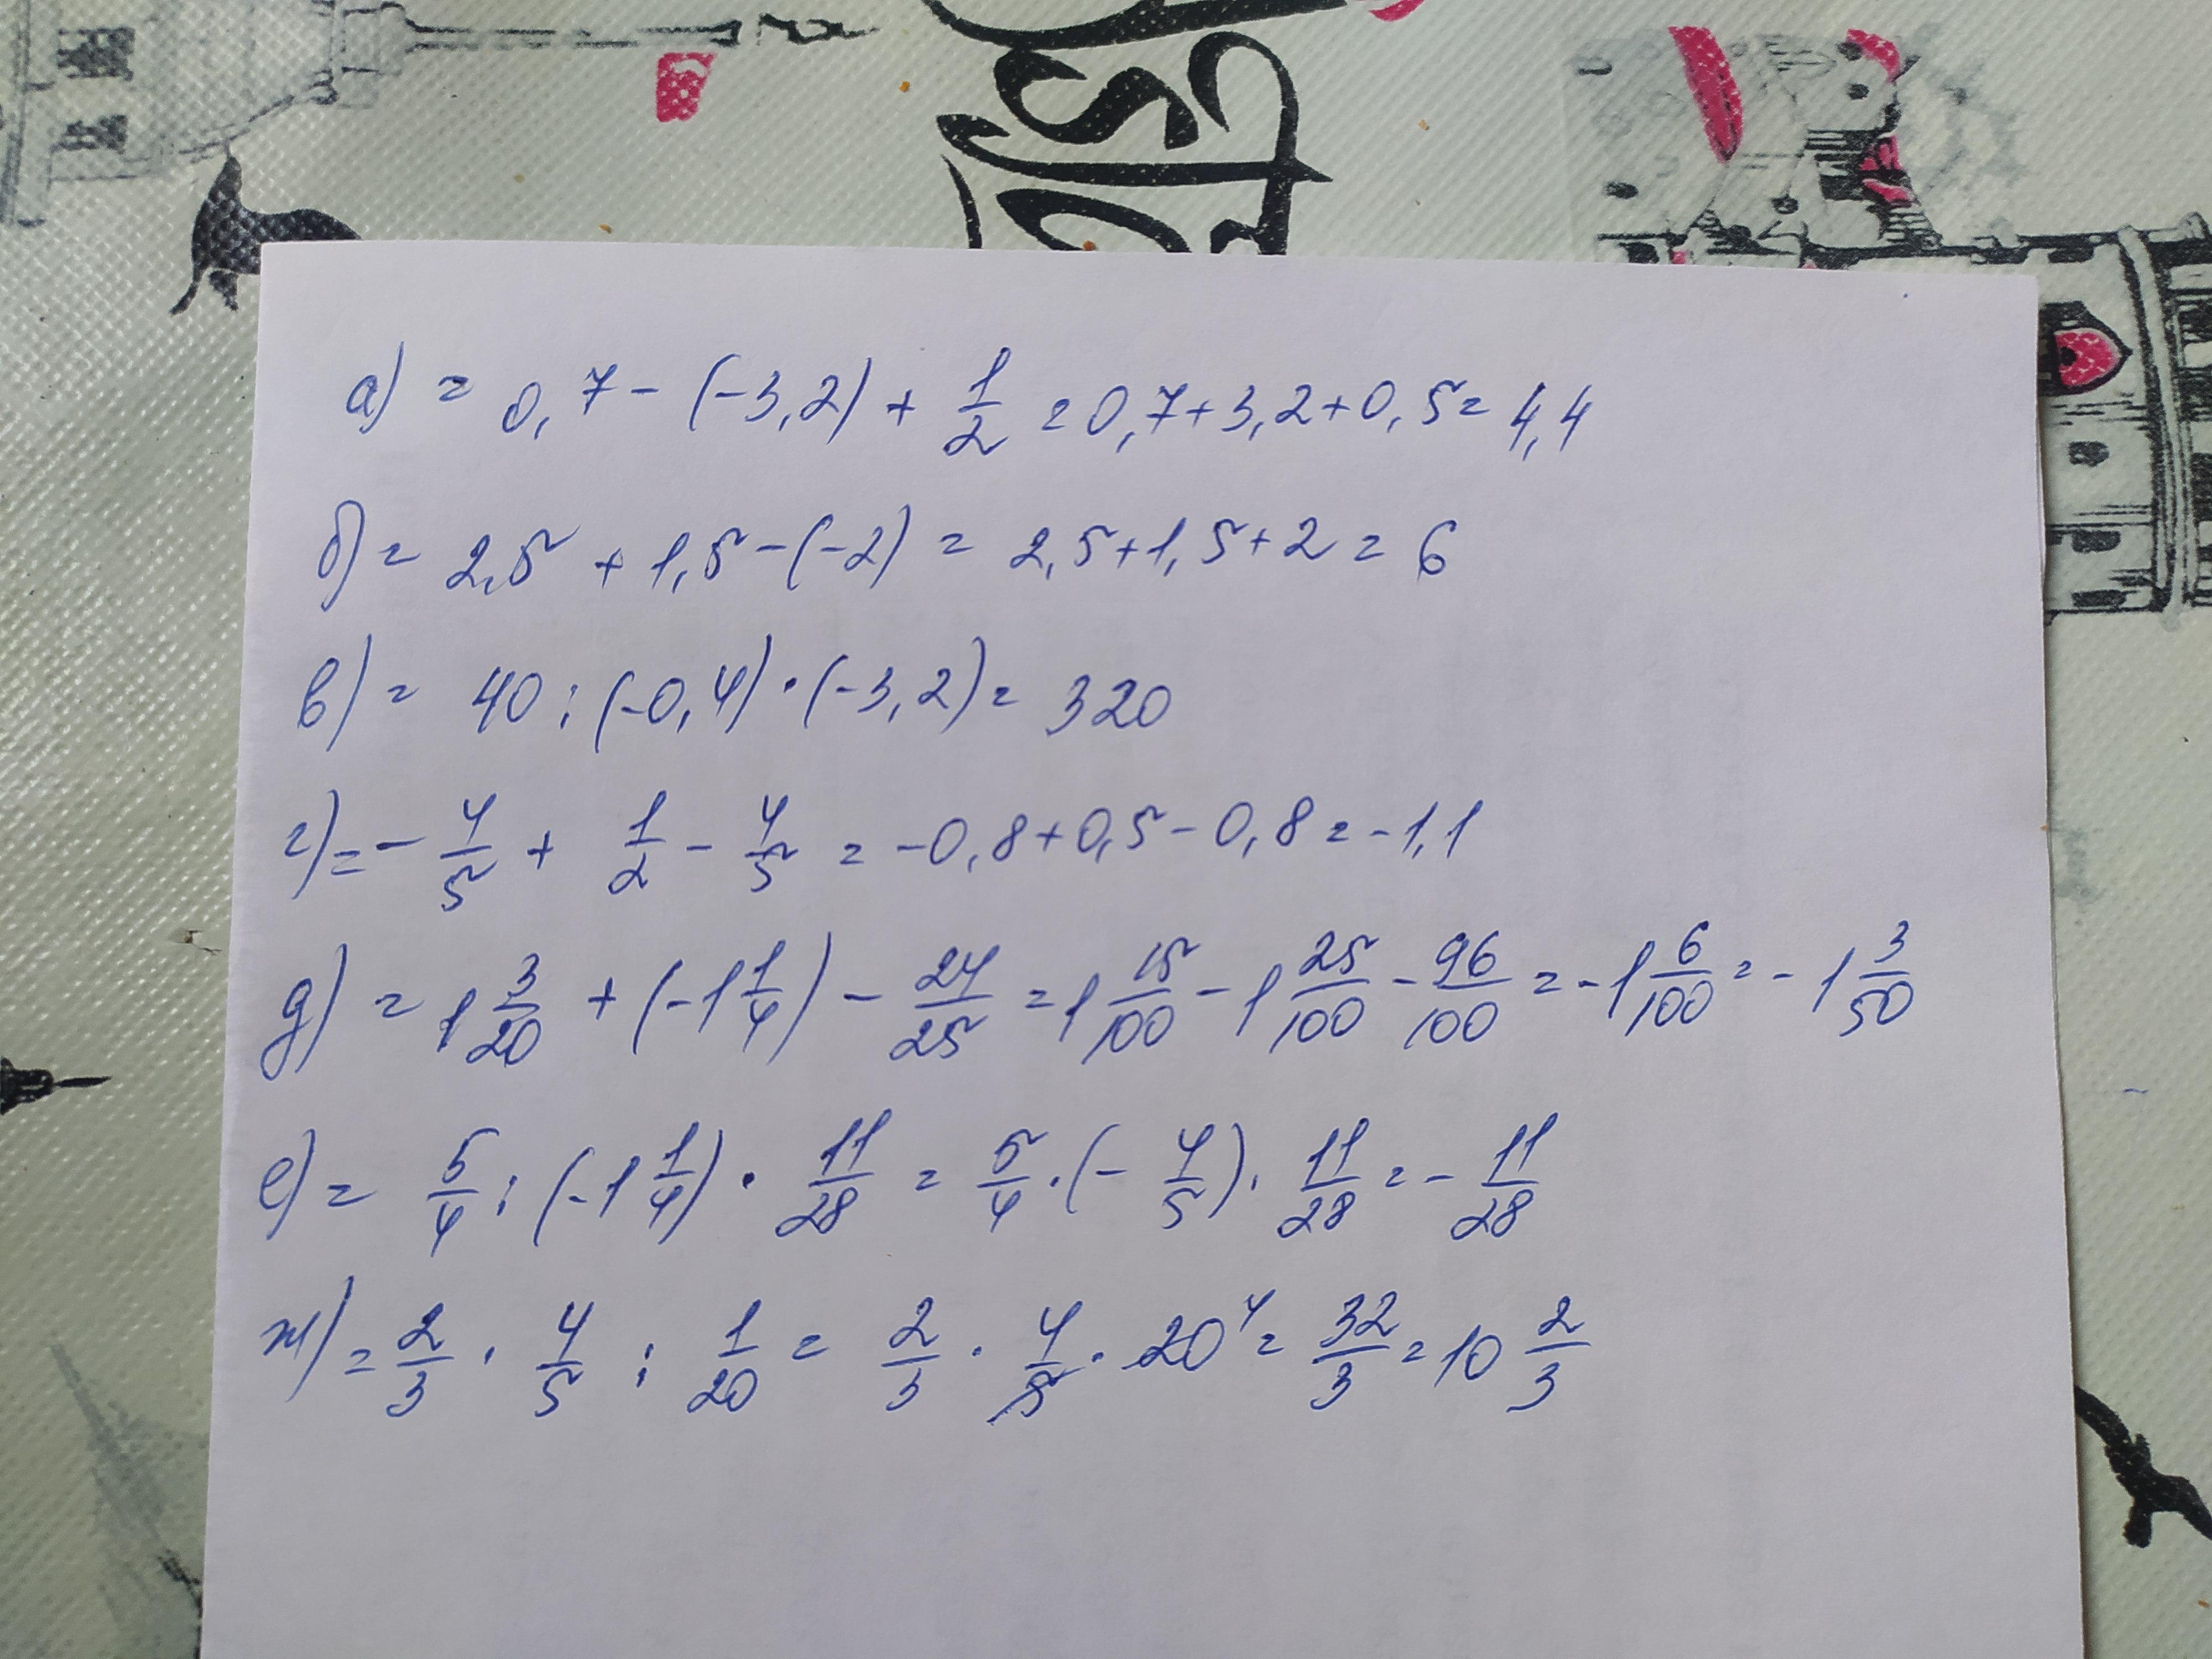 а) = 0,7 - (-3,2) + 1/2 = 0,7+3,2+0,5 = 4,4
б) = 2,5 + 1,5 - (-2) = 2,5+1,5+2 = 6
в) = 40 : (-0,4) · (-3,2) = 320
г) = - 4/5 + 1/2 - 4/5 = -0,8+0,5-0,8 = -1,1
д) = 1 3/20 + (-1 1/4) - 24/25 = 1 15/100 - 1 25/100 - 96/100 = -1 6/100 = -1 3/50
е) = 5/4 : (-1 1/4) · 11/28 = 5/4 · (- 4/5) · 11/28 = - 11/28
ж) = 2/3 · 4/5 : 1/20 = 2/3 · 4/5 · 20 4 = 32/3 = 10 2/3